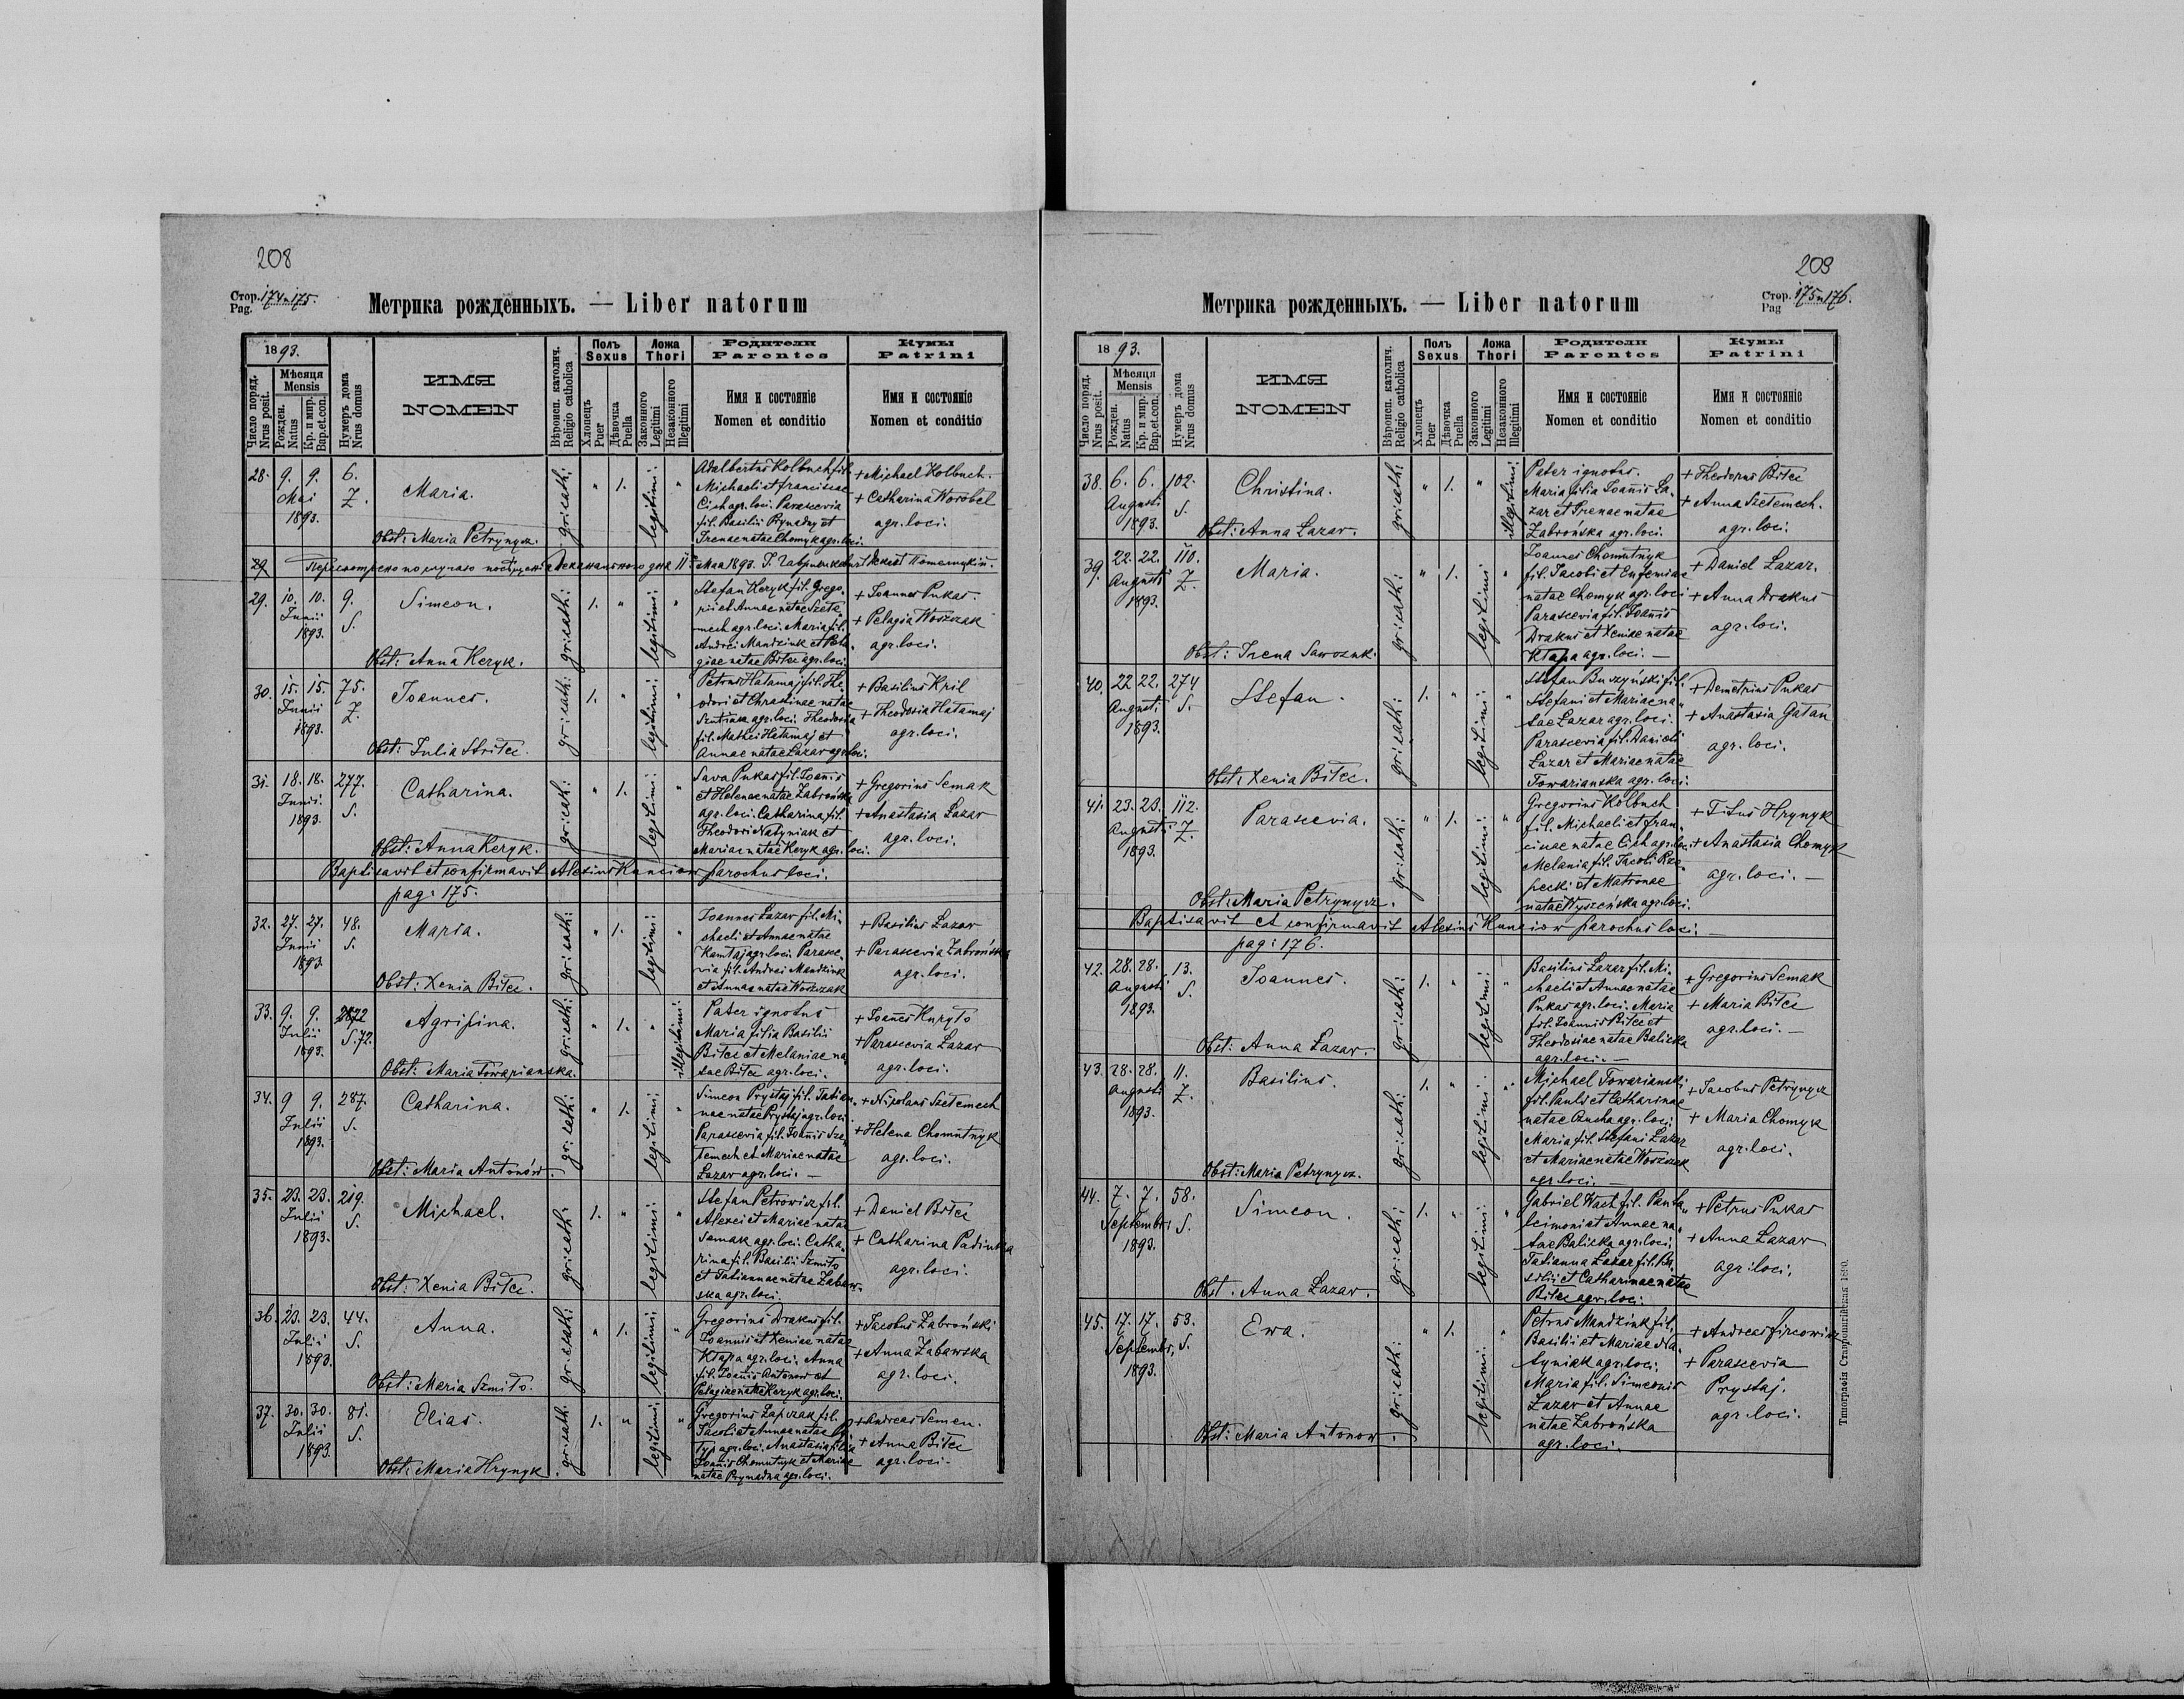 208
Стор. 174 n 175.
Pag.
Метрика рожденныхъ. — Liber natorum
1893.
Число поряд.
Nrus posit.
Мѣсяця
Mensis
Рожден.
Natus
Кр. и мир.
Bap.et.con.
Нумеръ дома
Nrus domus
ИМЯ
NOMEN
Вѣроисп. католич.
Religio catholica
Полъ
Sexus
Хлопецъ
Puer
Дѣвочка
Puella
Ложа
Thori
Законного
Legitimi
Незаконного
Illegitimi
Родители
Parentes
Имя и состояніе
Nomen et conditio
Кумы
Patrini
Имя и состояніе
Nomen et conditio
28. 9. 9. 6.
Mai Z.
1893.
Maria.
Obst: Maria Petrynycz.
gr: cath: " 1. legitimi: "
Adalbertus Kolbuch fil.
Michaeli et Franciscae
Cich agr. loci. Parascevia
fil. Basilii Rynadny et
Irenae natae Chomyk agr. loci.
+ Michael Kolbuch
+ Catharina Worobel
agr. loci.
29
мая 1893.
29. 10. 10. 9.
Junii S.
1893.
Simeon.
Obst: Anna Keryk.
gr: cath: 1. " legitimi: "
Stefan Keryk fil. Grego-
rii et Annae natae Szete-
mech agr. loci. Maria fil.
Andrei Mandziuk et Pela-
giae natae Bitec agr. loci.
+ Joannes Pukas.
+ Pelagia Woszczak
agr. loci.
30. 15. 15. 75.
Junii Z.
1893.
Joannes.
Obst: Julia Stritec.
gr: cath: 1. " legitimi: "
Petrus Hatamaj fil. The-
odori et Chrastinae natae
agr. loci. Theodosia
fil. Mathei Hatamaj et
Annae natae Lazar agr. loci.
+ Basilius Kril
+ Theodosia Hatamaj
agr. loci.
31. 18. 18. 277.
Junii. S.
1893.
Catharina.
Obst: Anna Keryk.
gr: cath: " 1. legitimi: "
Sava Pukas fil. Joanis
et Helenae natae Zabrońska
agr. loci. Catharina fil.
Theodori Natyniak et
Mariae natae Keryk agr. loci.
+ Gregorius Semak
+ Anastasia Lazar
agr. loci.
Baptisavit et confirmavit Alexius Kunciow parochus loci.
pag: 175.
32. 27. 27. 48.
Junii S.
1893.
Maria.
Obst: Xenia Bitec.
gr: cath: " 1. legitimi: "
Joannes Lazar fil. Mi-
chaeli et Annae natae
Kamtaj agr. loci. Parasce-
via fil. Andrei Mandziuk
et Annae natae Woszczak
+ Basilius Lazar
+ Parascevia Zabrońska
agr. loci.
33. 9. 9. 2872
Julii S. 72.
1893.
Agripina.
Obst: Maria Towarianska.
gr: cath: " 1. " illegitimi:
Pater ignotus
Maria filia Basilii
Bitec et Melaniae na-
tae Bitec agr. loci.
+ Joanes Kuryto
+ Parascevia Lazar
agr. loci.
34. 9 9. 287.
Julii S.
1893.
Catharina.
Obst: Maria Antonów.
gr: cath: " 1. legitimi: "
Simeon Prystaj fil. Tatian-
nae natae Prystaj agr. loci.
Parascevia fil. Joanis Sze-
temech et Mariae natae
Lazar agr. loci. —
+ Nicolaus Szetemech
+ Helena Chomutnyk
agr. loci.
35. 23. 23. 219.
Julii S.
1893.
Michael.
Obst: Xenia Bitec.
gr: cath: 1. " legitimi: "
Stefan Petrowicz fil.
Alexei et Mariae natae
Semak agr. loci. Catha-
rina fil. Basilii Szmito
et Tatiannae natae Zabaw-
ska agr. loci.
+ Daniel Bitec
+ Catharina Padiuka
agr. loci.
36. 23. 23. 44.
Julii S.
1893.
Anna.
Obst: Maria Szmito.
gr: cath: " 1. legitimi: "
Gregorius Drakus fil.
Joannis et Xeniae natae
Ktapa agr. loci. Anna
fil. Joanis Antonow et
Pelagiae natae Keryk agr. loci.
+ Jacobus Zabroński
+ Anna Zabawska
agr. loci.
37. 30. 30. 81.
Julii S.
1893.
Elias.
Obst: Maria Hrynyk.
gr: cath. 1. " legitimi: "
Gregorius Lapczak fil.
Jacobi et Annae natae
agr. loci. Anastasia filia
Joanis Chomutnyk et Mariae
natae Rynadna agr. loci.
+ Andreas Semen.
+ Anna Bitec
agr. loci.
209
Стор. 175 n 176.
Pag
Метрика рожденныхъ. — Liber natorum
1893.
Число поряд.
Nrus posit.
Мѣсяця
Mensis
Рожден.
Natus
Кр. и мир.
Bap.et.con.
Нумеръ дома
Nrus domus
ИМЯ
NOMEN
Вѣроисп. католич.
Religio catholica
Полъ
Sexus
Хлопецъ
Puer
Дѣвочка
Puella
Ложа
Thori
Законного
Legitimi
Незаконного
Illegitimi
Родители
Parentes
Имя и состояніе
Nomen et conditio
Кумы
Patrini
Имя и состояніе
Nomen et conditio
38. 6. 6. 102.
Augusti S.
1893.
Christina.
Obst: Anna Lazar.
gr: cath: " 1. " illegitimi.
Pater ignotus.
Maria filia Joanis La-
zar et Irenae natae
Zabrońska agr. loci.
+ Theodorus Bitec
+ Anna Szetemech.
agr. loci.
39. 22. 22. 110.
Augusti Z.
1893.
Maria.
Obst: Irena Sawczuk.
gr: cath: " 1. legitimi "
Joannes Chomutnyk
fil. Jacobi et Eufemiae
natae Chomyk agr. loci
Parascevia fil. Joanis
Drakus et Xeniae natae
Ktapa agr. loci. —
+ Daniel Lazar.
+ Anna Drakus
agr. loci.
40. 22 22. 274
Augusti S.
1893.
Stefan.
Obst: Xenia Bitec.
gr: cath: 1. " legitimi: "
Stefan Buszyński fil.
Stefani et Mariae na-
tae Lazar agr. loci.
Parascevia fil. Danieli
Lazar et Mariae natae
Towarianska agr. loci:
+ Demetrius Pukas
+ Anastasia Gatan
agr. loci.
41. 23. 23. 112.
Augusti Z.
1893.
Parascevia.
Obst: Maria Petrynycz.
gr: cath: " 1. legitimi: "
Gregorius Kolbuch
fil. Michaeli et Fran-
ciscae natae Cich agr. loci.
Melania fil. Jacobi Rze-
pecki et Matronae
natae Wyszeńska agr. loci.
+ Titus Hrynyk
+ Anastasia Chomyk
agr. loci. —
Baptisavit et confirmavit Alexius Kunciow parochus loci. —
pag: 176.
42. 28. 28. 13.
Augusti S.
1893.
Joannes.
Obst: Anna Lazar.
gr: cath: 1. " legitimi: "
Basilius Lazar fil. Mi-
chaeli et Annae natae
Pukas agr. loci. Maria
fil. Joannis Bitec et
Theodosiae natae Balicka
agr. loci. —
+ Gregorius Semak
+ Maria Bitec
agr. loci. —
43. 28. 28. 11.
Augusti Z.
1893.
Basilius.
Obst: Maria Petrynycz.
gr: cath: 1. " legitimi: "
Michael Towarianski
fil. Pauli et Catharinae
natae agr. loci.
Maria fil. Stefani Lazar
et Mariae natae Woszczak
agr. loci. —
+ Jacobus Petrynycz
+ Maria Chomyk
agr. loci.
44. 7. 7. 58.
Septembr: S.
1893.
Simeon.
Obst. Anna Lazar.
gr: cath: 1. " legitimi: "
Gabriel Wact fil. Panta-
leimoni et Annae na-
tae Balicka agr. loci;
Tatianna Lazar fil. Ba-
silii et Catharinae natae
Bitec agr. loci.
+ Petrus Pukas
+ Anna Lazar
agr: loci.
45. 17. 17. 53.
Septembr. S.
1893.
Ewa.
Obst: Maria Antonow.
gr: cath: " 1. legitimi: "
Petrus Mandziuk fil.
Basilii et Mariae Na-
tyniak agr. loci.
Maria fil. Simeonis
Lazar et Annae
natae Zabrońska
agr. loci.
+ Andreas Fircowicz
+ Parascevia
Prystaj.
agr. loci.
Типографія Ставропигійская 1890.